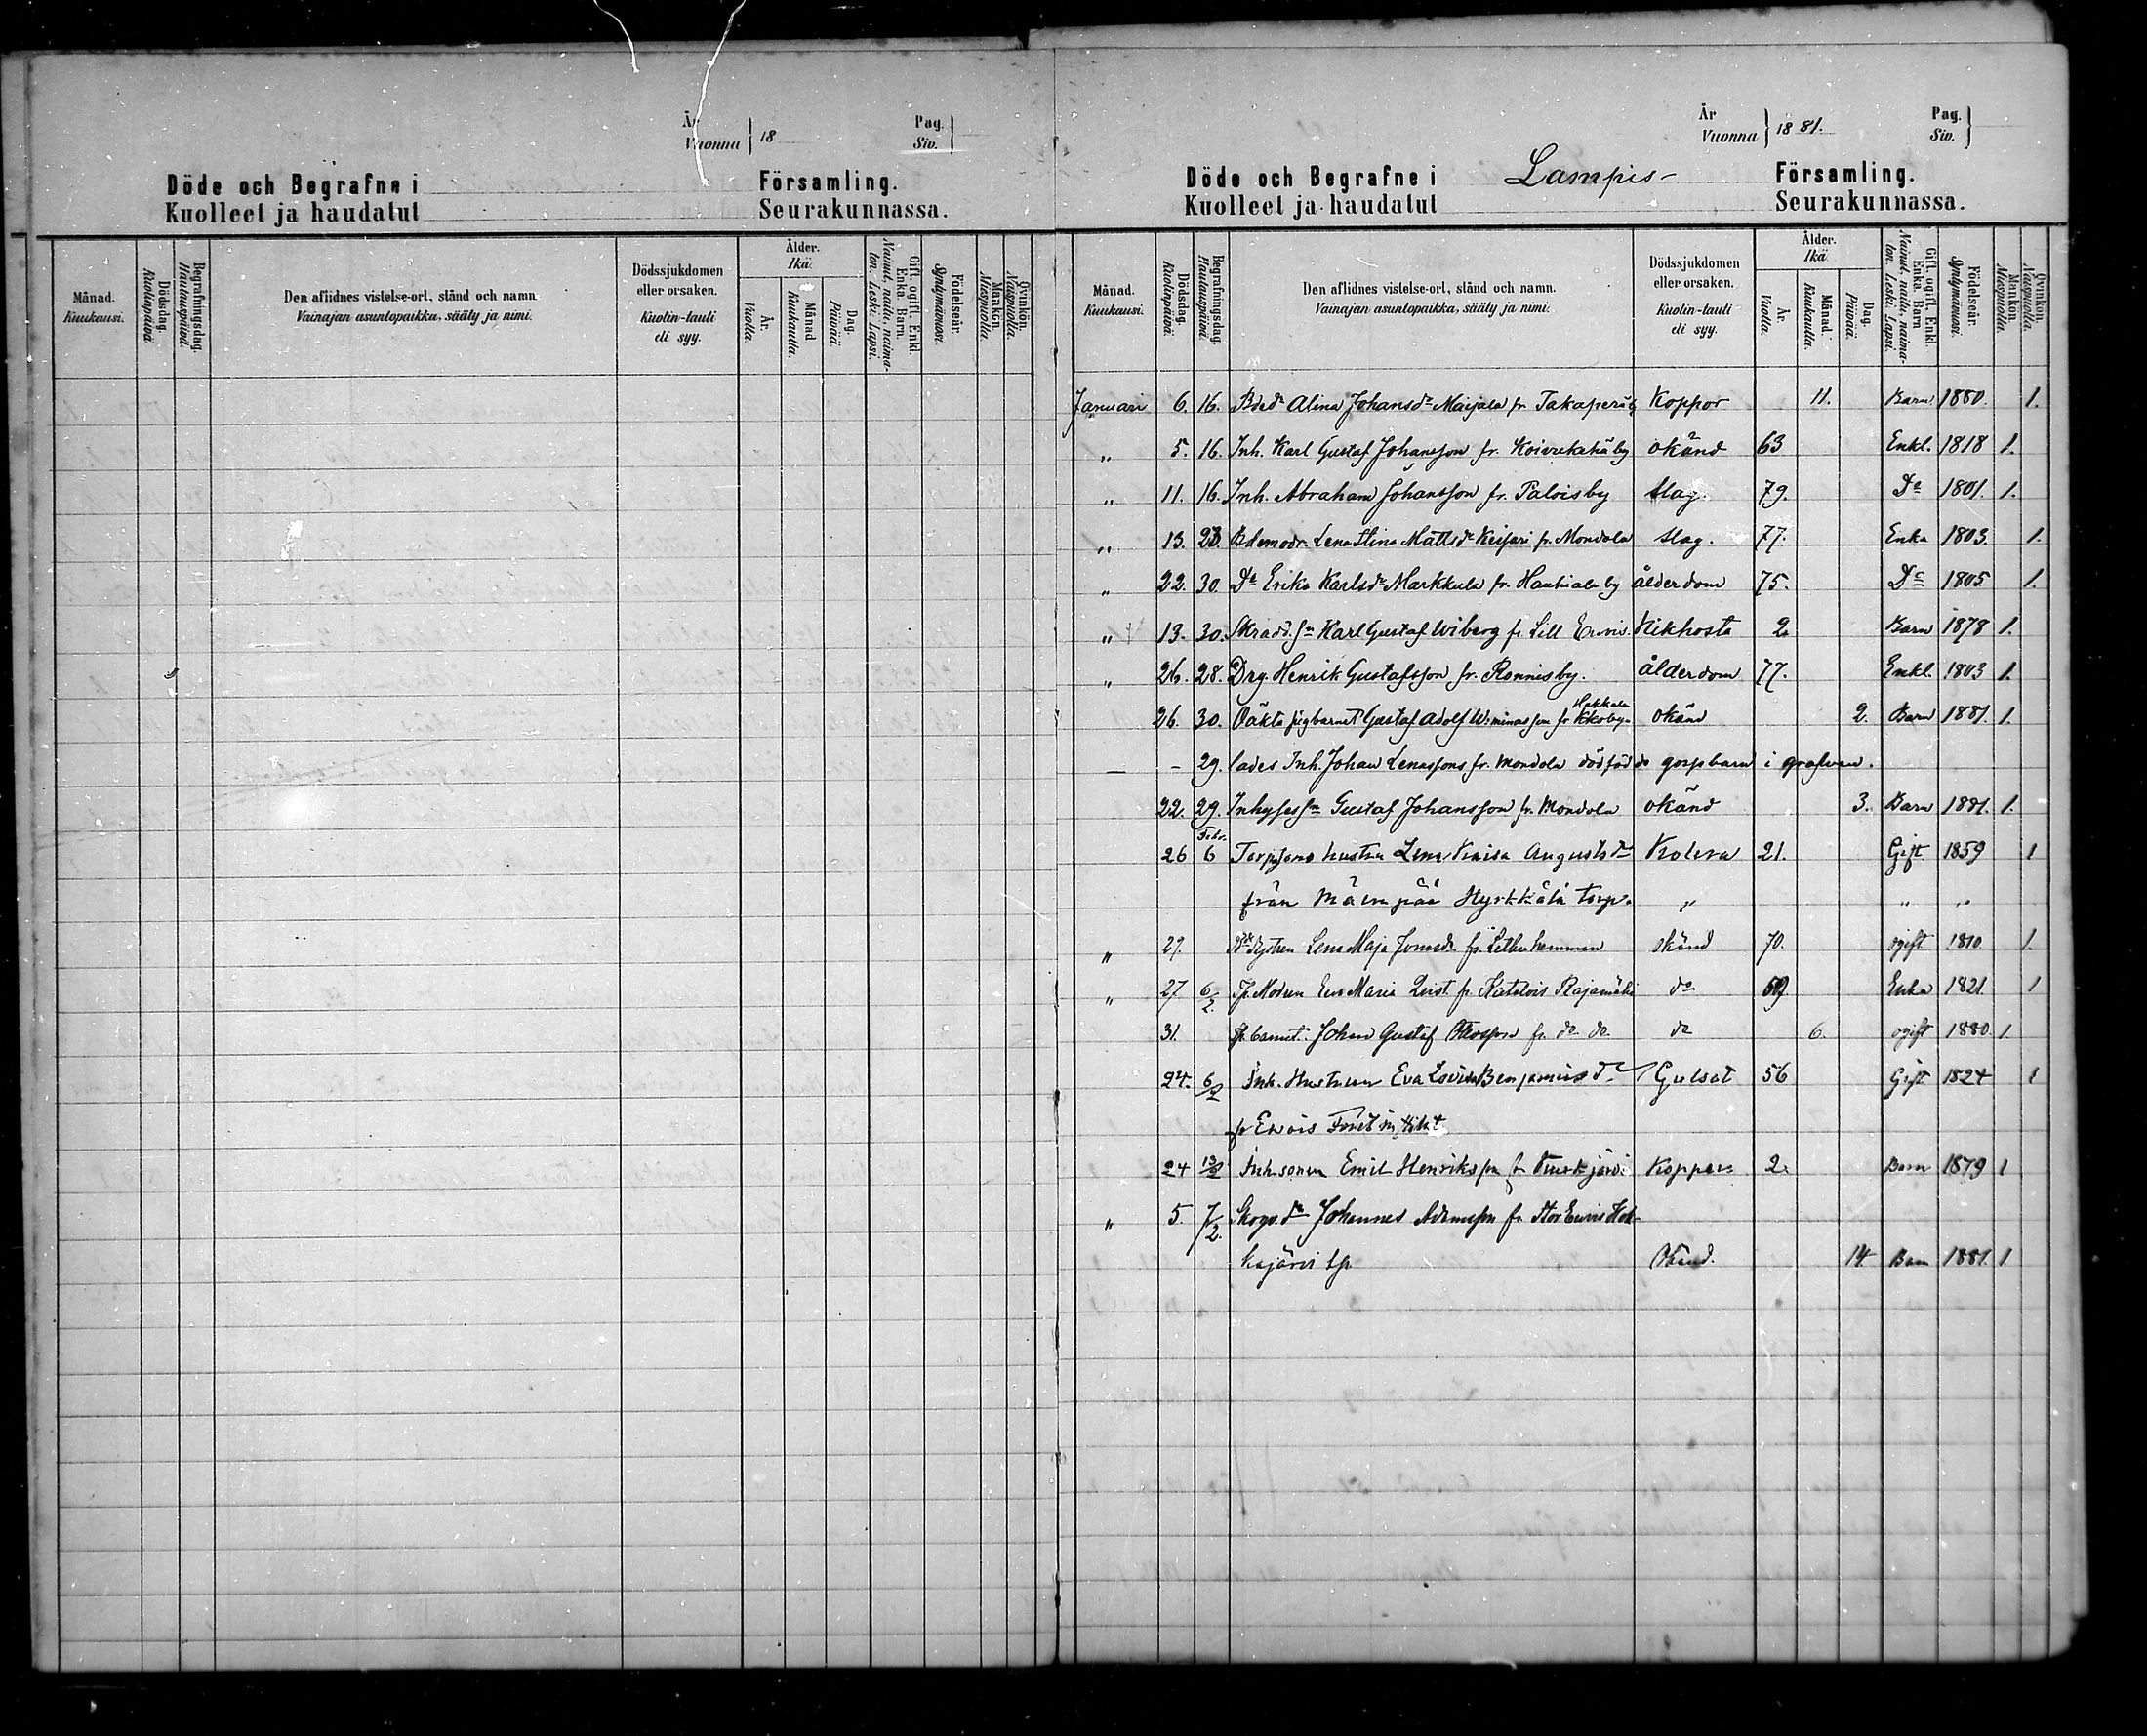 År
Vuonna } 18
Pag.
Siv.
Döde och Begrafne i Församling.
Kuolleet ja haudatut Seurakunnassa.
Månad. Kuukausi.
Dödsdag. Kuolinpäivä.
Begrafningsdag. Hautauspäivä.
Den aflidnes vistelse-ort, stånd och namn.
Vainajan asuntopaikka, sääty ja nimi.
Dödssjukdomen eller orsaken.
Kuolin-tauti eli syy.
Ålder. Ikä.
År. Vuotta.
Månad Kuukautta.
Dag. Päivää.
Gift, ogift, Enkl. Enka. Barn.
Nainut, naitu, naimaton. Leski. Lapsi.
Födelseår. Syntymävuosi.
Mankön. Miespuolia.
Qvinkön. Naispuolia.
År
Vuonna } 1881.
Pag.
Siv.
Döde och Begrafne i Lampis Församling.
Kuolleet ja haudatut Seurakunnassa.
Månad. Kuukausi.
Dödsdag. Kuolinpäivä.
Begrafningsdag. Hautauspäivä.
Den aflidnes vistelse-ort, stånd och namn.
Vainajan asuntopaikka, sääty ja nimi.
Dödssjukdomen eller orsaken.
Kuolin-tauti eli syy.
Ålder. Ikä.
År. Vuotta.
Månad. Kuukautta.
Dag. Päivää.
Gift, ogift, Enkl. Enka. Barn
Nainut, naitu, naimaton. Leski. Lapsi.
Födelseår. Syntymävuosi.
Mankön. Miespuolia.
Qvinkön. Naispuolia.
Januari 6. 16. Alina Johansdr Maijala fr Koppor 11. Barn 1880. 1.
„ 5. 16. Inh. Karl Gustaf Johansson fr. by okänd 63 Enkl. 1818 1.
„ 11. 16. Inh. Abraham Johansson fr. Paloisby slag. 79. Do 1801. 1.
„ 13. 23. Bdemodr. Lena Stina Mattsdr Keisari fr. Mondola slag. 77. Enka 1803. 1.
„ 22. 30. Do Erika Karlsdr Markkula fr. Hauhiala by ålderdom 75. Do 1805 1.
„ 13. 30. Skradd. sn Karl Gustaf Wiberg fr. Lill Evois. Kikhosta 2 Barn 1878 1.
„ 26. 28. Drg. Henrik Gustafsson fr. Ronnisby. ålderdom 77. Enkl. 1803 1.
26. 30. Oäkta Gustaf Adolf fr okänd 2. Barn 1881. 1.
— - 29. lades Inh. Johan Lenassons fr. Mondola dödfödde gossbarn i grafven.
22. 29. Inhysessn Gustaf Johansson fr. Mondola okänd 3. Barn 1881. 1.
26 Febr. 6 hustru Lena Kaisa Augustsdr Kolera 21. Gift 1859 1
från Mäenpää Hyrkkälä torp. „ „ „
„ 29. Lena Maja fr. hemman okänd 70. ogift 1810 1.
„ 27 6/2. Tp. Modren Eva Maria Qvist. fr. Katilois Rajamäki do 59 Enka 1821. 1
31. Tp. barnet. Johan Gustaf Ottosson fr. do. do. do 6. ogift 1880. 1.
24. 6/2 Inh. Hustrun Eva Lovisa Benjaminsdr Gulsot 56 Gift 1824 1
fr Evois
24 13/2 Inh sonen Emil Henrikssn fr Koppor 2. Barn 1879 1
„ 5. 7/2. Johannes Adamssn fr Stor Evois Hok-
kajärvi tp. Okänd. 14 Barn 1881. 1